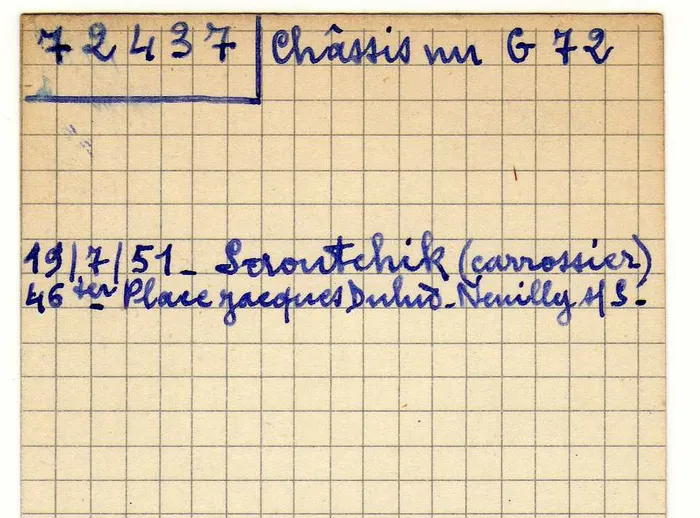 72437 Châssis nu G 72
19/7/51 - Saoutchik (carrossier)
46 ter Place Jacques Dulud - Neuilly s/S -